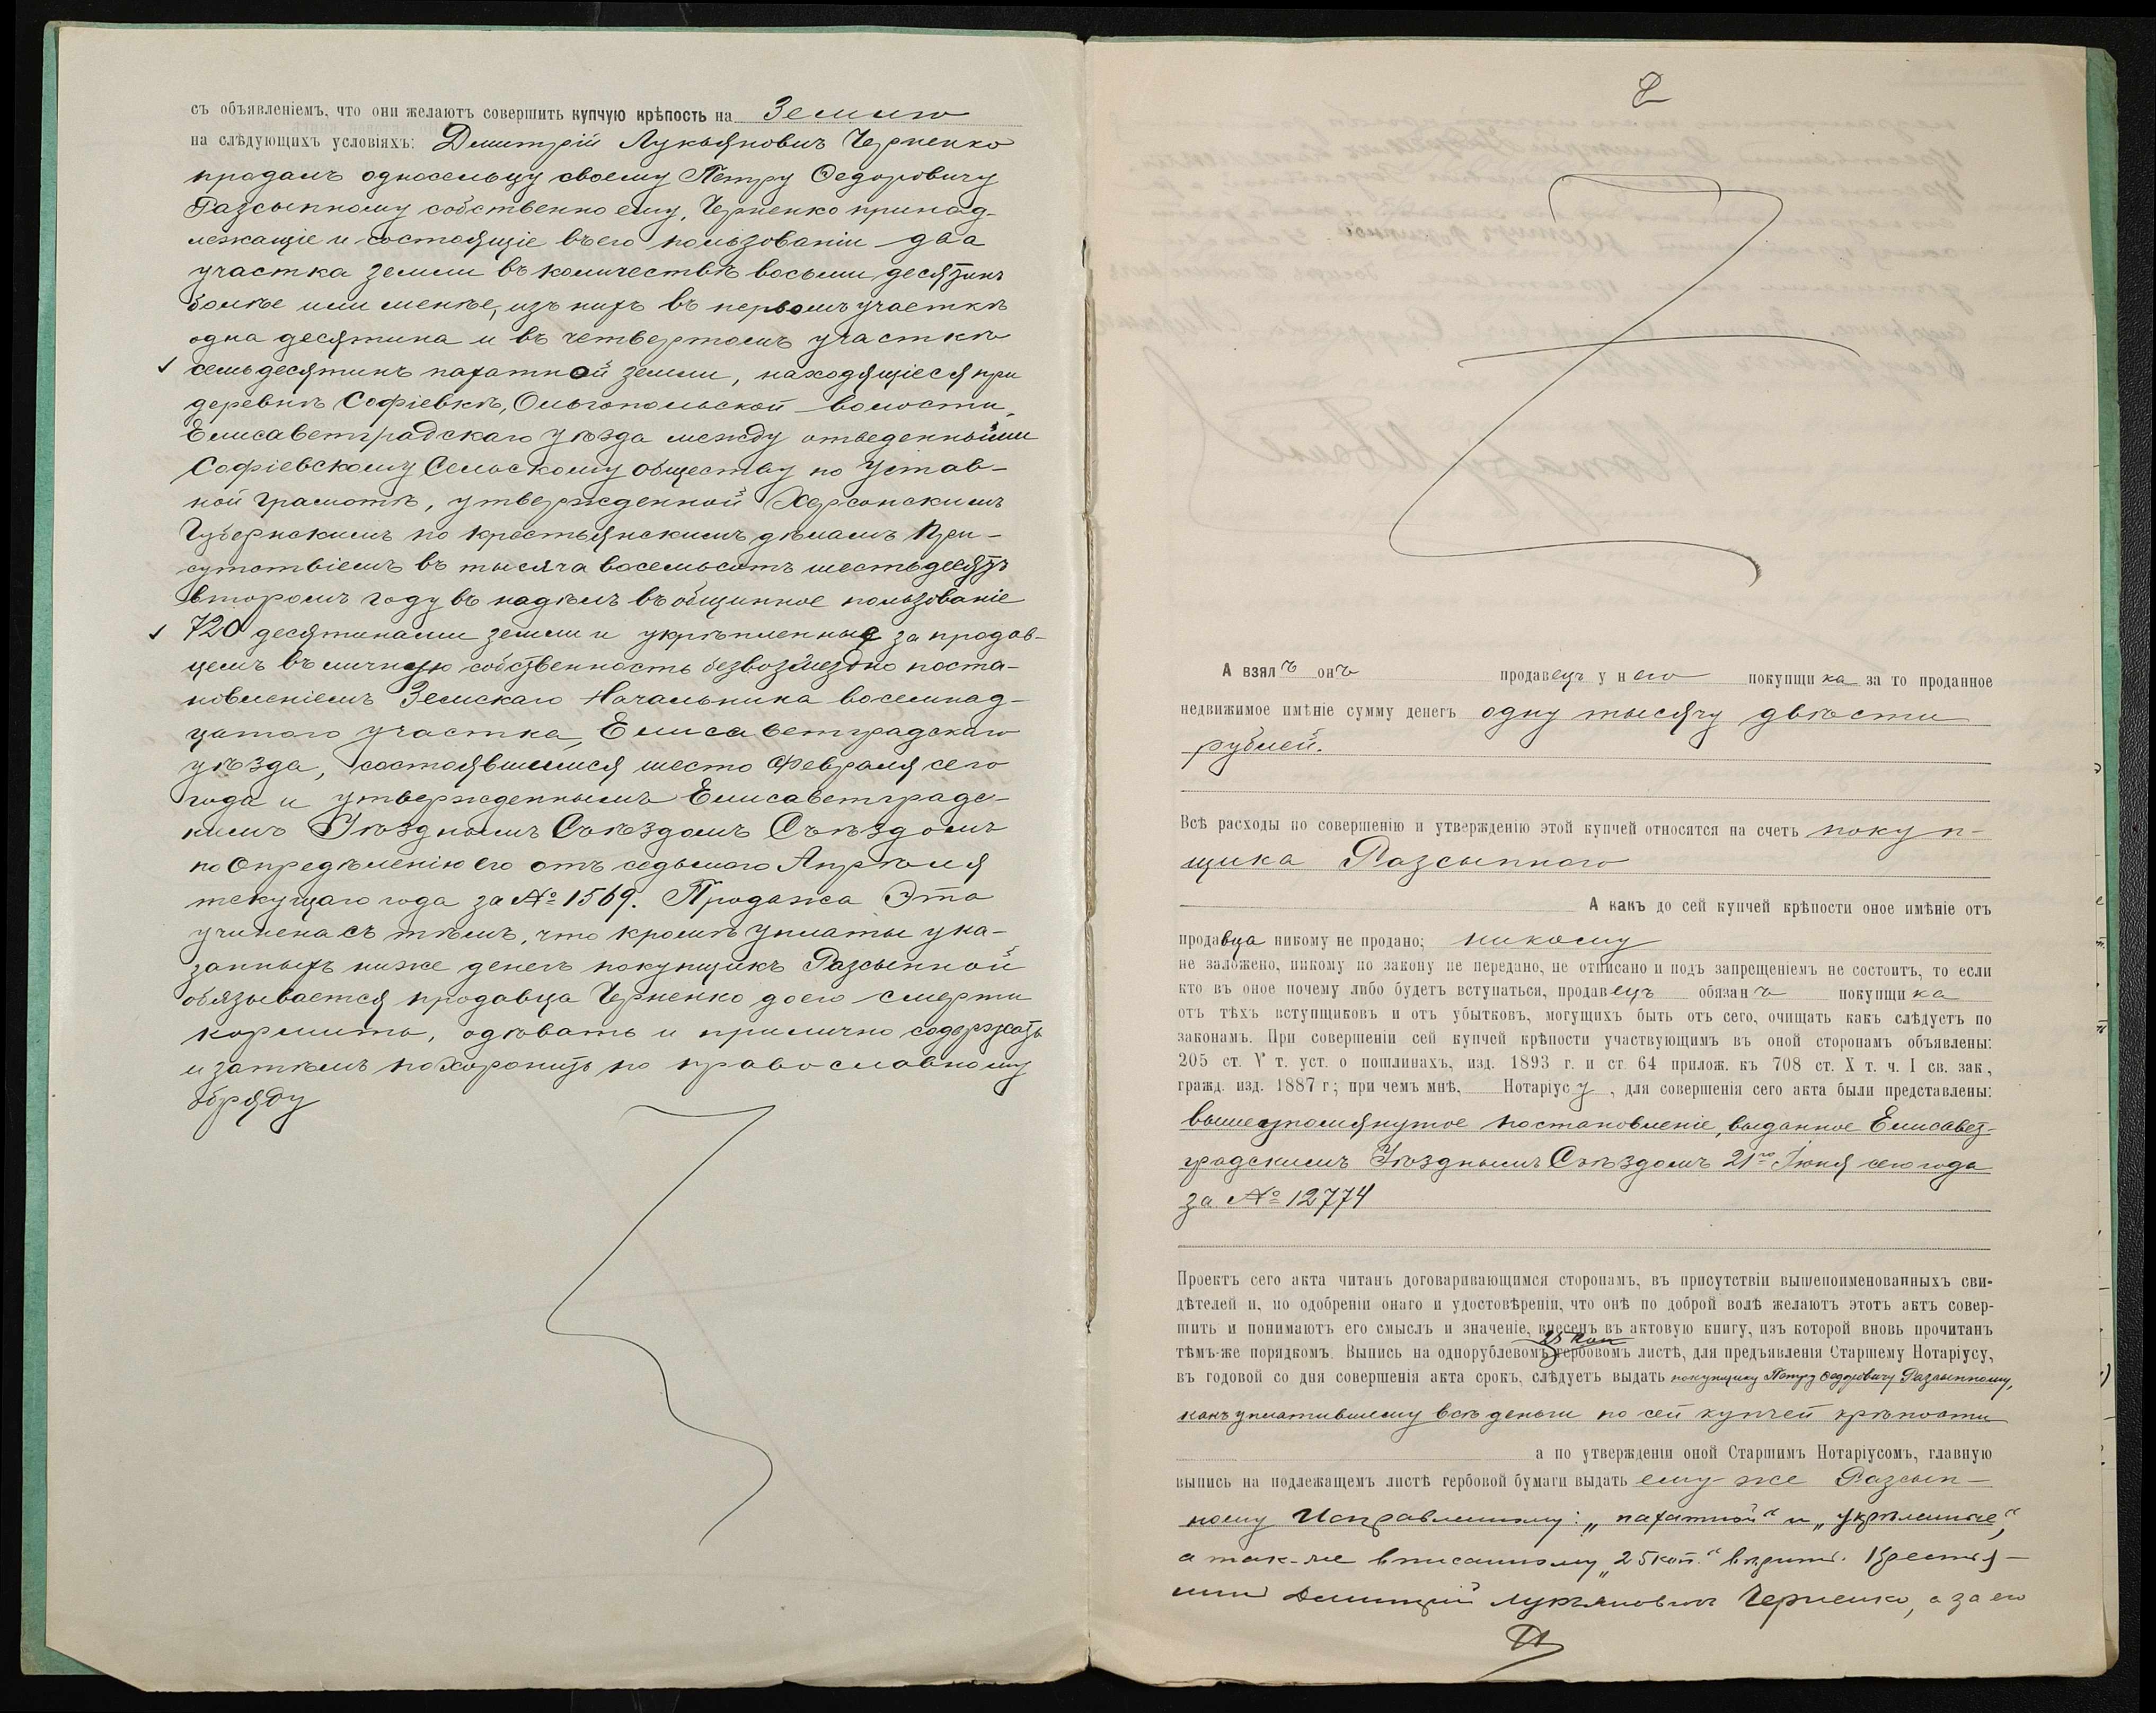 съ объявленіемъ, что они желаютъ совершить купчую крѣпость на Землю
на слѣдующихъ условіяхъ: Димитрій Лукьяновичъ Черненко
продалъ односельцу своему Петру Федоровичу
Разсыпному собственно ему, Черненко принад-
лежащіе и состоящіе въ его пользованіи два
участка земли въ количествѣ восьми десятинъ
болѣе или менѣе, изъ нихъ въ первомъ участкѣ
одна десятина и въ четвертомъ участкѣ
семь десятинъ пахатной земли, находящіеся при
деревнѣ Софіевкѣ, Ольгопольской волости,
Елисаветградскаго уѣзда между отведенными
Софіевскому Сельскому обществу по Устав-
ной грамотѣ, утвержденной Херсонскимъ
Губернскимъ по крестьянскимъ дѣламъ При-
сутствіемъ въ тысяча восемьсотъ шестьдесятъ
второмъ году въ надѣлъ въ общинное пользованіе
720 десятинами земли и укрѣпленные за продав-
цемъ въ личную собственность безвозмездно поста-
новленіемъ Земскаго Начальника восемнад-
цатого участка, Елисаветградскаго
уѣзда, состоявшимися шесто Февраля сего
года и утвержденнымъ Елисаветградс-
кимъ Уѣзднымъ Съѣздомъ Съѣздомъ
по Опредѣленію его отъ седьмого Апрѣля
текущаго года за № 1569. Продажа Эта
учинена съ тѣмъ, что кромѣ уплаты ука-
занныхъ ниже денегъ покупщикъ Разсыпной
обязывается продавца Черненко до его смерти
кормить, одѣвать и прилично содержать
и затѣмъ похоронить по православному
обряду
2
А взялъ онъ продавецъ у него покупщика за то проданное
недвижимое имѣніе сумму денегъ одну тысячу двѣсти
рублей.
Всѣ расходы по совершенію и утвержденію этой купчей относятся на счетъ покуп-
щика Разсыпного
А какъ до сей купчей крѣпости оное имѣніе отъ
продавца никому не продано; никому
не заложено, никому по закону не передано, не отписано и подъ запрещеніемъ не состоитъ, то если
кто въ оное почему либо будетъ вступаться, продавецъ обязанъ покупщика
отъ тѣхъ вступщиковъ и отъ убытковъ, могущихъ быть отъ сего, очищать какъ слѣдуетъ по
законамъ. При совершеніи сей купчей крѣпости участвующимъ въ оной сторонамъ объявлены:
205 ст. V т. уст. о пошлинахъ, изд. 1893 г. и ст. 64 прилож. къ 708 ст. X т. ч. I св. зак.,
гражд. изд. 1887 г; при чемъ мнѣ, Нотаріусу, для совершенія сего акта были представлены:
вышеупомянутое постановленіе, выданное Елисавет-
градскимъ Уѣзднымъ Съѣздомъ 21го Іюня сего года
за № 12774
Проектъ сего акта читанъ договаривающимся сторонамъ, въ присутствіи вышепоименованныхъ сви-
дѣтелей и, по одобреніи онаго и удостовѣреніи, что онѣ по доброй волѣ желаютъ этотъ актъ совер-
шить и понимаютъ его смыслъ и значеніе, внесенъ въ актовую книгу, изъ которой вновь прочитанъ
25 коп
тѣмъ-же порядкомъ. Выпись на однорублевомъ гербовомъ листѣ, для предъявленія Старшему Нотаріусу,
въ годовой со дня совершенія акта срокъ, слѣдуетъ выдать покупщику Петру Федоровичу Разсыпному,
какъ уплатившему всѣ деньги по сей купчей крѣпости
а по утвержденіи оной Старшимъ Нотаріусомъ, главную
выпись на подлежащемъ листѣ гербовой бумаги выдать ему-же Разсып-
ному Исправленному: „пахатной“ и „укрѣпленные“,
а так-же вписанному „25 коп.“ вѣрить. Крестья-
нинъ Димитрій Лукьяновичъ Черненко, а за его